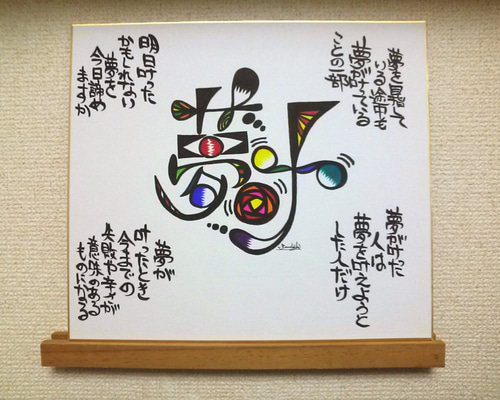 夢を目指して
いる途中も
夢が叶っている
ことの一部
夢叶
明日叶った
かもしれない
夢を
今日諦め
ますか
夢が叶った
人は
夢を叶えようと
した人だけ
夢が
叶ったとき
今までの
失敗や辛さが
意味のある
ものにかわる